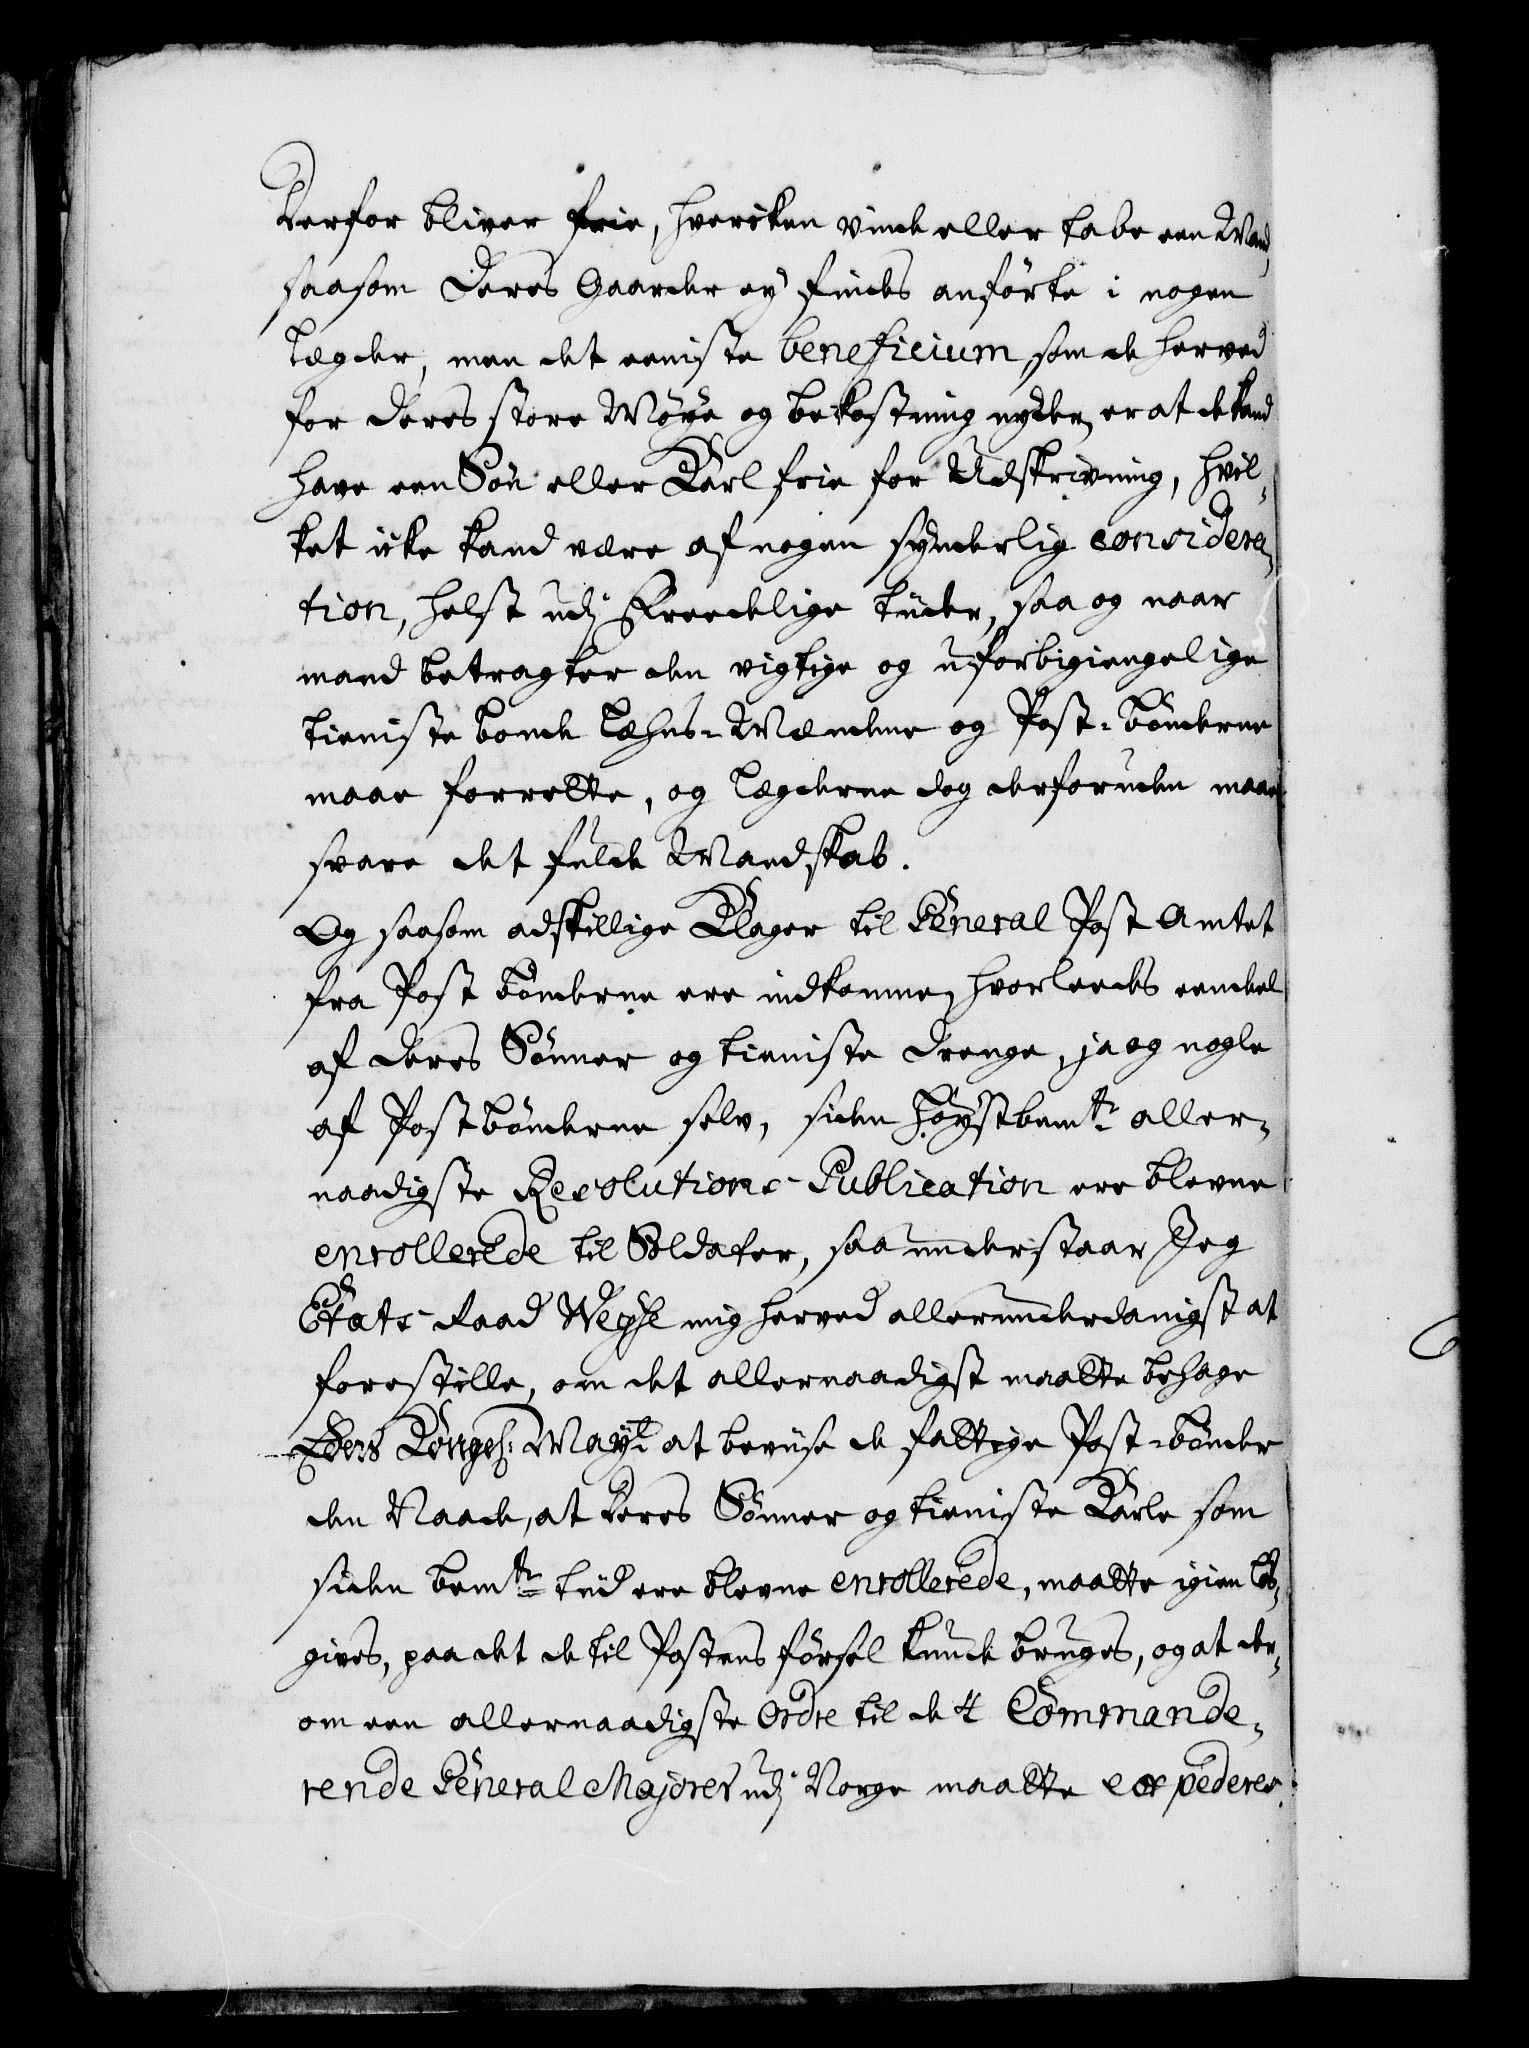 derfor bliver frie, hverken vinde eller tabe een Mand,
saasom deres Gaarder ey findes anførte i nogen
Lægder, men det eeniste beneficium, som de herved
for deres store Møye og bekostning nyder, er at de kand
have een Søn eller Karl frie for Udskrivning, hvil-
ket icke kand være af nogen synderlig considera-
tion, helst udj Freedelige tiider, saa og naar
mand betragter den vigtige og uforbigiengelige
tieniste bonde Læhns-Mændene og Post-bønderne
maae forrette, og Lægderne dog derforuden maae
svare det fulde Mandskab.
Og saasom adskillige Klager til General Post Amtet
fra Post bønderne ere indkomne, hvorleedes eendel
af deres Sønner og tieniste drenge, ja og nogle
af Postbønderne selv, siden høystbemte aller-
naadigste Resolutions-Publication ere blevne
enrollerede til Soldater, saa understaar Jeg
Etats-Raad Weyse mig herved allerunderdanigst at
forestille, om det allernaadigst maatte behage
Eders Kongel: Mayt at beviise de fattige Post-bønder
den Naade, at deres Sønner og tieniste Karle som
siden bemte tiid ere blevne enrollerede, maatte igien løs-
gives, paa det de til Postens førsel kunde bruges, og at der-
om een allernaadigste Ordre til de 4 Commande-
rende General Majorer udj Norge maatte expederes.